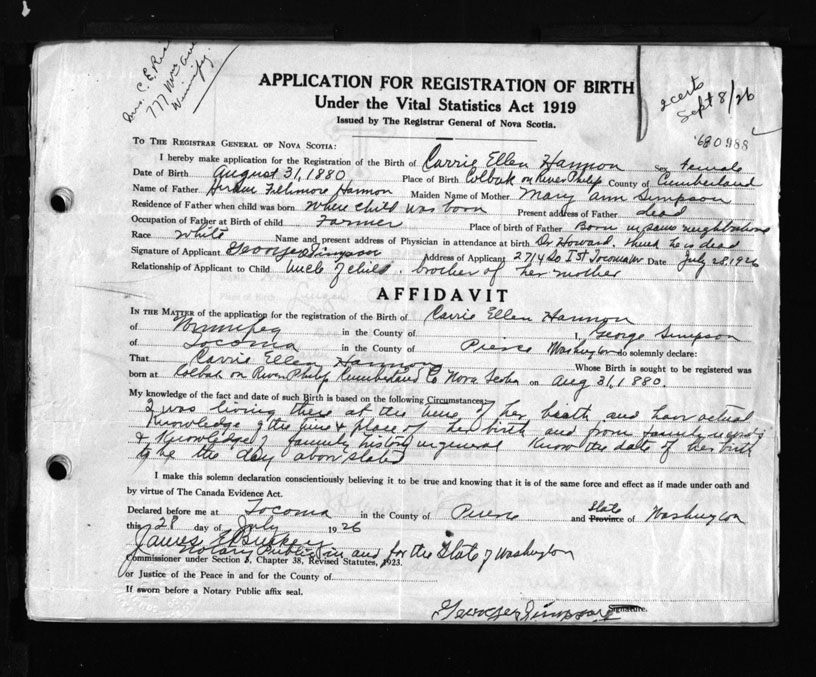 Mrs. C. E.
777
Winnipeg.
2 certs
Sept 8/26
APPLICATION FOR REGISTRATION OF BIRTH
Under the Vital Statistics Act 1919
Issued by The Registrar General of Nova Scotia.
TO THE REGISTRAR GENERAL OF NOVA SCOTIA:
I hereby make application for the Registration of the Birth of Carrie Ellen Harmon Sex Female
Date of Birth August 31, 1880 Place of Birth on River Philip County of Cumberland
Name of Father Fillmore Harmon Maiden Name of Mother Mary Ann Simpson
Residence of Father when child was born Where child was born Present address of Father dead
Occupation of Father at Birth of child Farmer Place of birth of Father Born in same neighborhood
Race White Name and present address of Physician in attendance at birth Dr Howard. think he is dead
Signature of Applicant George Simpson Address of Applicant Tacoma Date July 28, 1926
Relationship of Applicant to Child Uncle of child. brother of her mother
AFFIDAVIT
IN THE MATTER of the application for the registration of the Birth of Carrie Ellen Harmon
of Winnipeg in the County of I, George Simpson
of Tocoma in the County of Pierce Washington do solemnly declare:
That Carrie Ellen Harmon Whose Birth is sought to be registered was
born at on River Philip Cumberland Co Nova Scotia on Aug 31, 1880.
My knowledge of the fact and date of such Birth is based on the following Circumstances:
I was living there at the time of her birth and have actual
Knowledge of the time & place of her birth and from family records
& Knowledge of family history in general Know the date of her birth
to be the day above stated
I make this solemn declaration conscientiously believing it to be true and knowing that it is of the same force and effect as if made under oath and
by virtue of The Canada Evidence Act.
Declared before me at Tocoma in the County of Pierce and Province State of Washington
this 28 day of July 1926
James E
Notary Public in and for the State of Washington
Commissioner under Section 8, Chapter 38, Revised Statutes, 1923.
or Justice of the Peace in and for the County of
If sworn before a Notary Public affix seal.
George Simpson Signature.